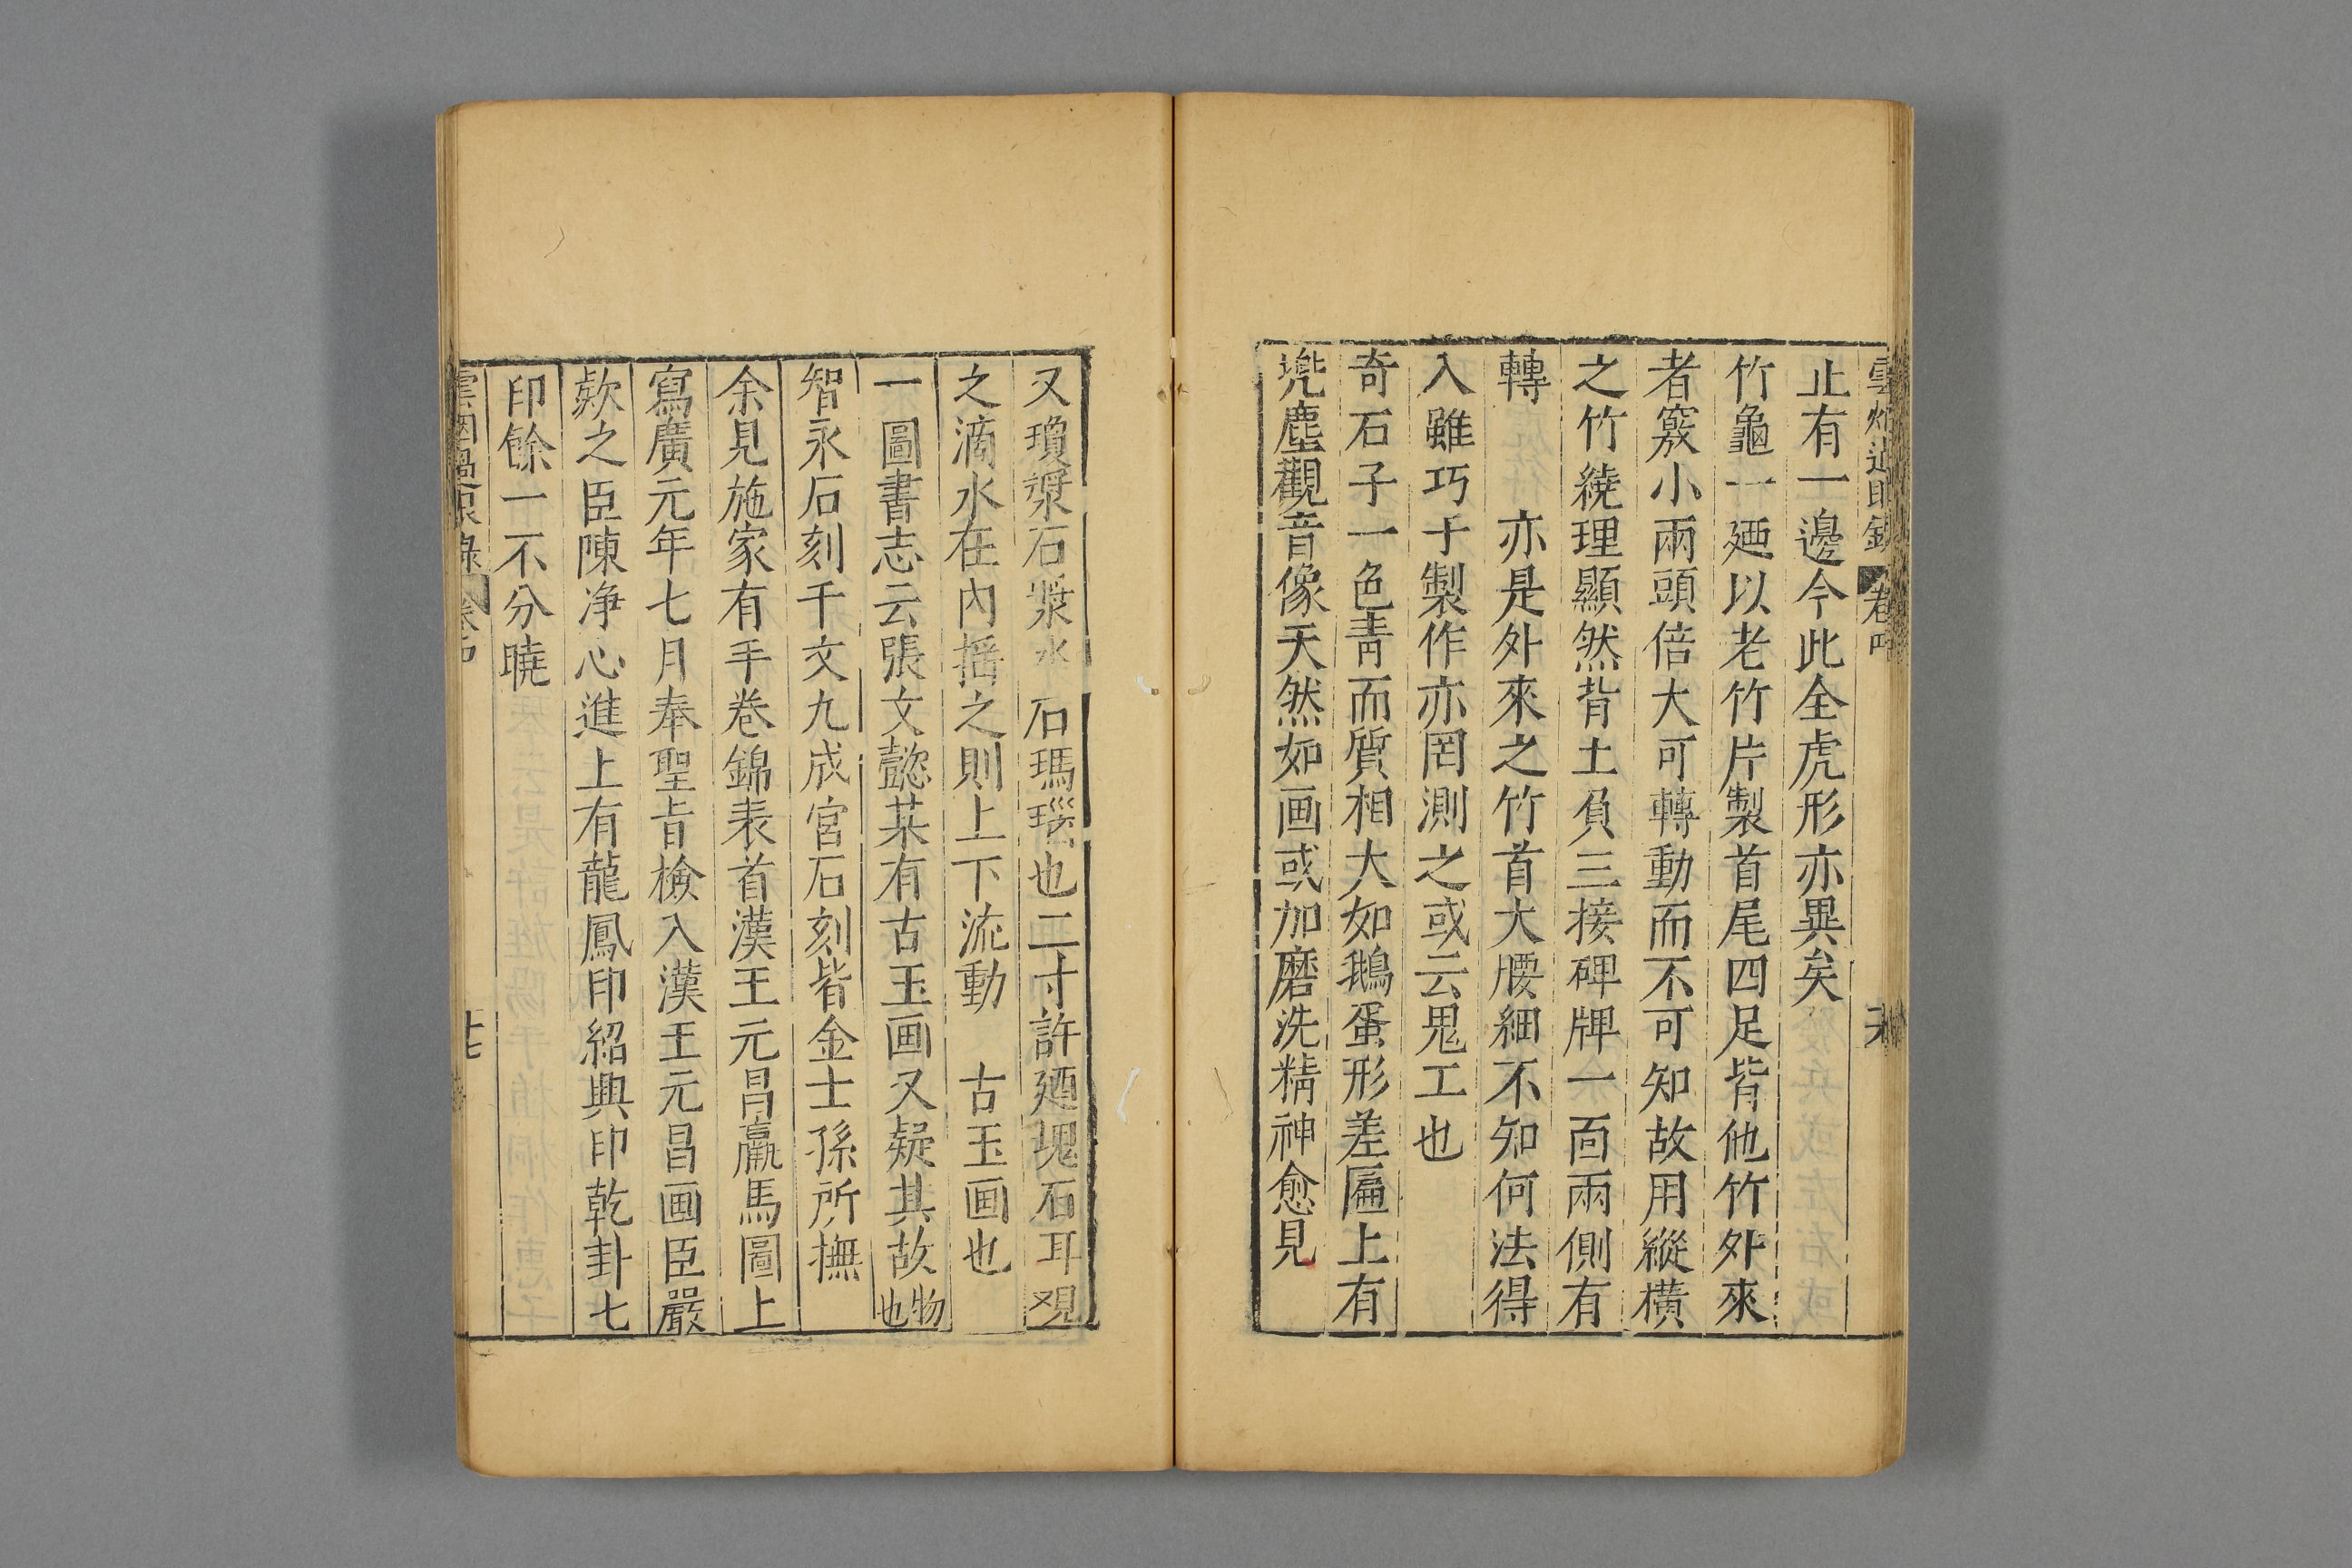 雲烟過眼錄 卷四
止有一邊今此全虎形亦異矣
竹龜一廼以老竹片製首尾四足皆他竹外來
者竅小兩頭倍大可轉動而不可知故用縱橫
之竹繞理顯然背土負三接碑牌一面兩側有
轉 亦是外來之竹首大腰細不知何法得
入雖巧于製作亦罔測之或云鬼工也
奇石子一色青而質相大如鵝蛋形差匾上有
兠塵觀音像天然如画或加磨洗精神愈見
又瓊漿石漿水石瑪瑙也二寸許廼塊石耳現
之滴水在內摇之則上下流動 古玉画也
一圖書志云張文懿某有古玉画又疑其故物也
智永石刻千文九成宮石刻皆金士孫所撫
余見施家有手卷錦表首漢王元昌羸馬圖上
寫廣元年七月奉聖旨檢入漢王元昌画臣嚴
欵之臣陳净心進上有龍鳳印紹興印乾卦七
印餘一不分曉
雲烟過眼錄 卷四 廿七